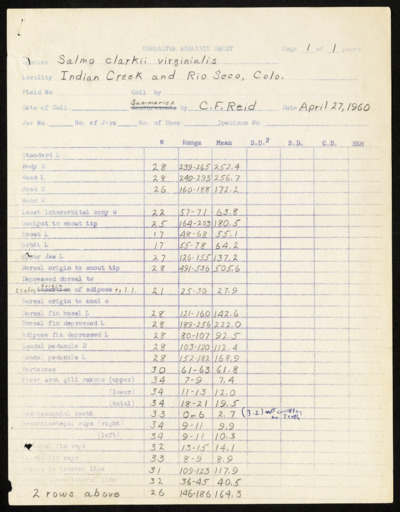 CHARACTER ANALYSIS SHEET Page 1 of 1 pages
Species Salmo clarkii virginialis
Locality Indian Creek and Rio Seco, Colo.
Field No Coll by
Date of Coll. Summaries by C.F. Reid Date April 27, 1960
Jar No No. of Jars No. of Spec. Specimen No.
N Range Mean S.D.² S.D. C.D. SEM
Standard L
Body D 28 239-265 252.4
Head L 28 240-293 256.7
Head D 26 160-188 172.2
Head W
Least interorbital bony w 22 57-71 63.8
Occiput to snout tip 25 164-203 180.5
Snout L 17 48-68 55.1
Orbit L 17 55-78 64.2
Upper Jaw L 27 126-155 137.2
Dorsal origin to snout tip 28 491-536 505.6
Depressed dorsal to
of adipose to l.l. 21 25-30 27.9
Dorsal origin to anal o
Dorsal fin basal L 28 121-160 142.6
Dorsal fin depressed L 28 189-256 222.0
Adipose fin depressed L 28 80-107 92.5
Caudal peduncle D 28 103-120 112.4
Caudal peduncle L 28 152-182 168.9
Vertebrae 30 61-63 61.8
First arch gill rakers (upper) 34 7-9 7.4
(lower) 34 11-13 12.0
(total) 34 18-21 19.5
Basibranchial teeth 33 0-6 2.7 (3.2) not counting no teeth
Branchiostegal rays (right) 34 9-11 9.9
(left) 34 9-11 10.3
fin rays 32 13-15 14.1
fin rays 33 8-9 8.9
lateral line 31 109-123 117.9
lateral line 32 36-45 40.5
2 rows above 26 146-186 164.3